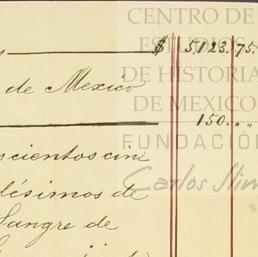 CENTRO DE
$ 5,123.75.
ESTUDIOS
DE HISTORIA
de Mexico
DE MEXICO
150. „ „
FUNDACIÓN
scientos cin
Carlos Slim
lésimos de
Sangre de